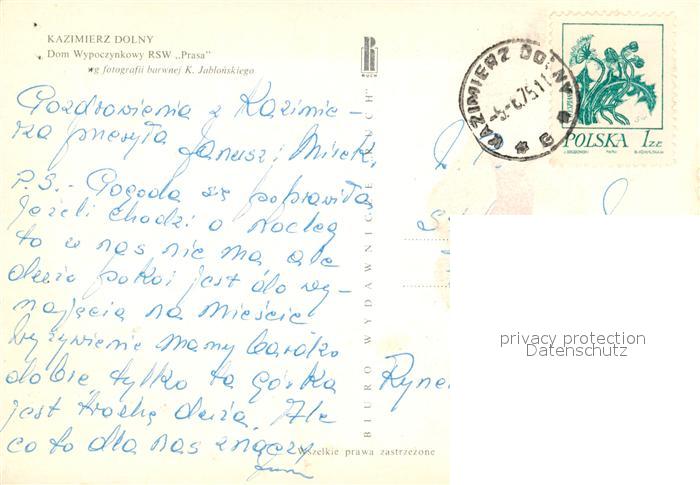 KAZIMIERZ DOLNY
Dom Wypoczynkowy RSW „Prasa"
wg fotografii barwnej K. Jabłońskiego
Pozdrowienia z Kazimie-
rza przesyła Janusz i Mirek.
P.S. - Pogoda się poprawiła
jeżeli chodzi o nocleg
to w nas nie ma ale
dużo pokoi jest do wy-
najęcia na mieście
wyżywienie mamy bardzo
dobre tylko ta górka
jest trochę duża. Ale
co to dla nas znaczy
Wszelkie prawa zastrzeżone
BIURO WYDAWNICZE „RUCH"
RUCH
KAZIMIERZ DOLNY
POLSKA 1 ZŁ
Ryne
privacy protection
Datenschutz